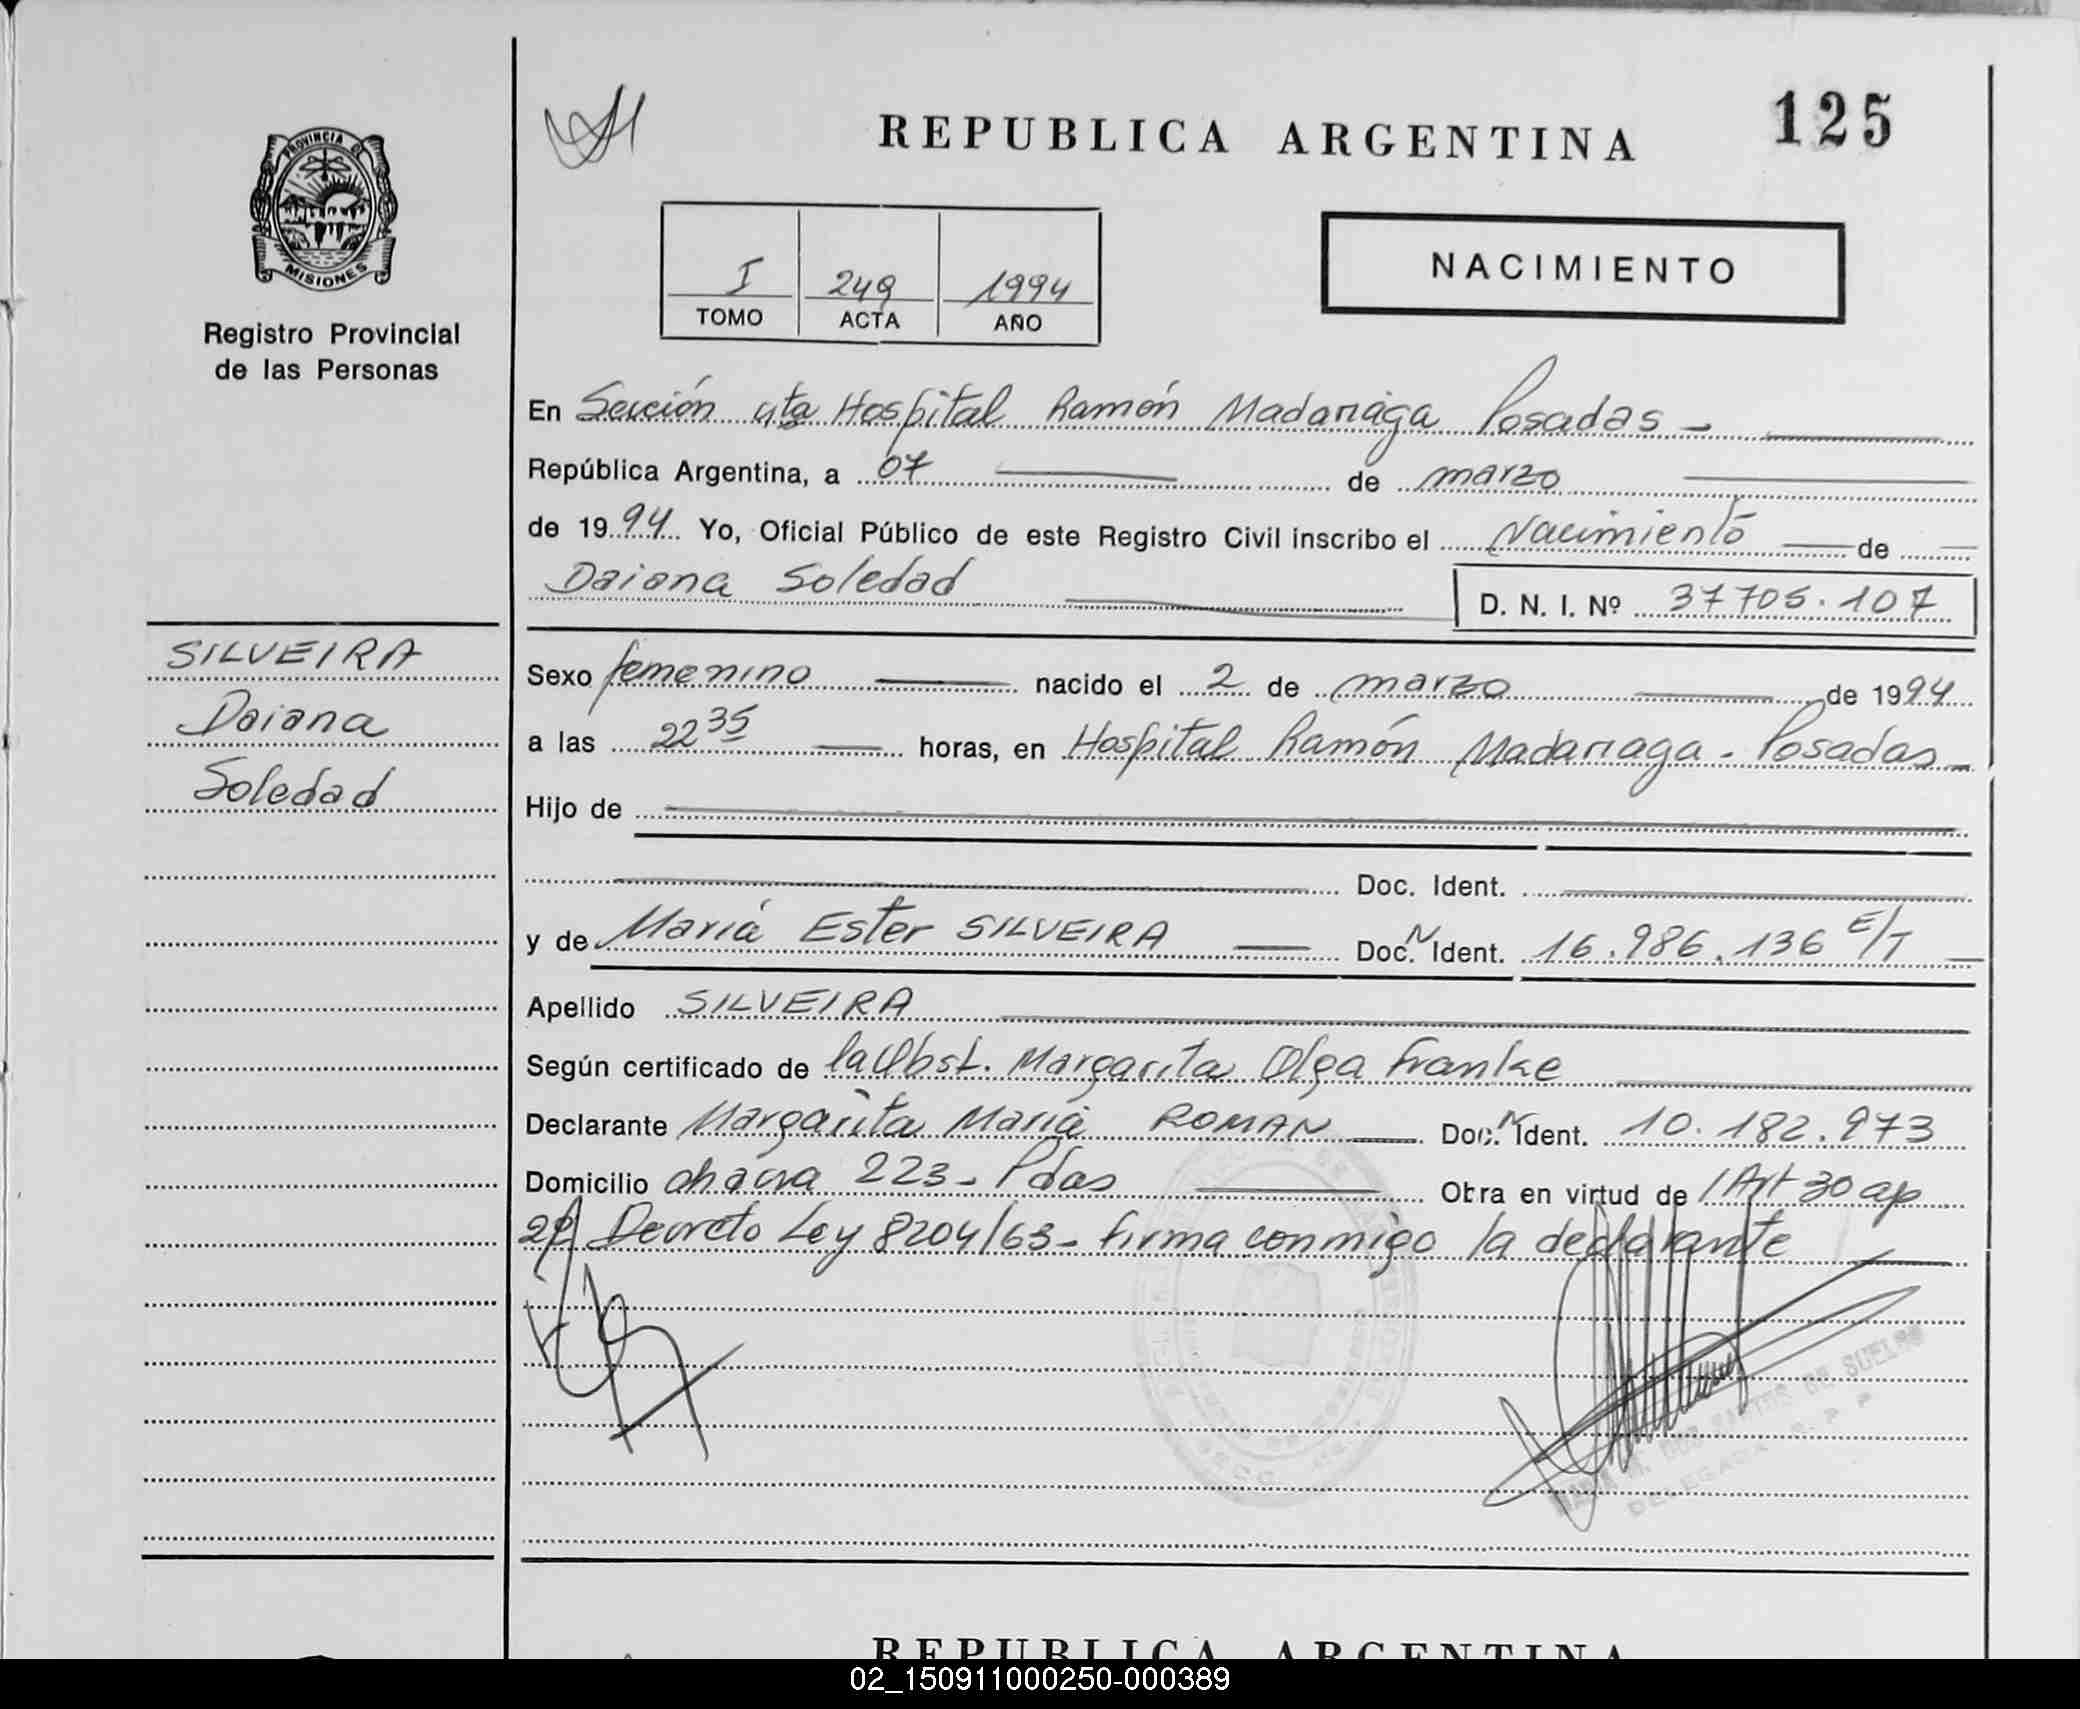 125
REPUBLICA ARGENTINA
PROVINCIA DE
MISIONES
Registro Provincial
de las Personas
I 249 1994
TOMO ACTA AÑO
NACIMIENTO
En Sección 4ta Hospital Ramón Madariaga Posadas -
República Argentina, a 07 de marzo
de 1994 Yo, Oficial Público de este Registro Civil inscribo el Nacimiento de
Daiana Soledad D. N. I. Nº 37705.107
SILVEIRA
Daiana
Soledad
Sexo femenino nacido el 2 de marzo de 1994
a las 22 35 horas, en Hospital Ramón Madariaga - Posadas -
Hijo de
Doc. Ident.
y de María Ester SILVEIRA Doc. N Ident. 16.986.136 E/T
Apellido SILVEIRA
Según certificado de la Obst. Margarita Olga Franke
Declarante Margarita María ROMAN Doc. N Ident. 10.182.973
Domicilio chacra 223 - Pdas Obra en virtud de l Art 30 ap
2º Decreto Ley 8204/63 - firma conmigo la declarante
DOS SANTOS DE SUELRO
DELEGADA R. P. P
REPUBLICA ARGENTINA
02_150911000250-000389